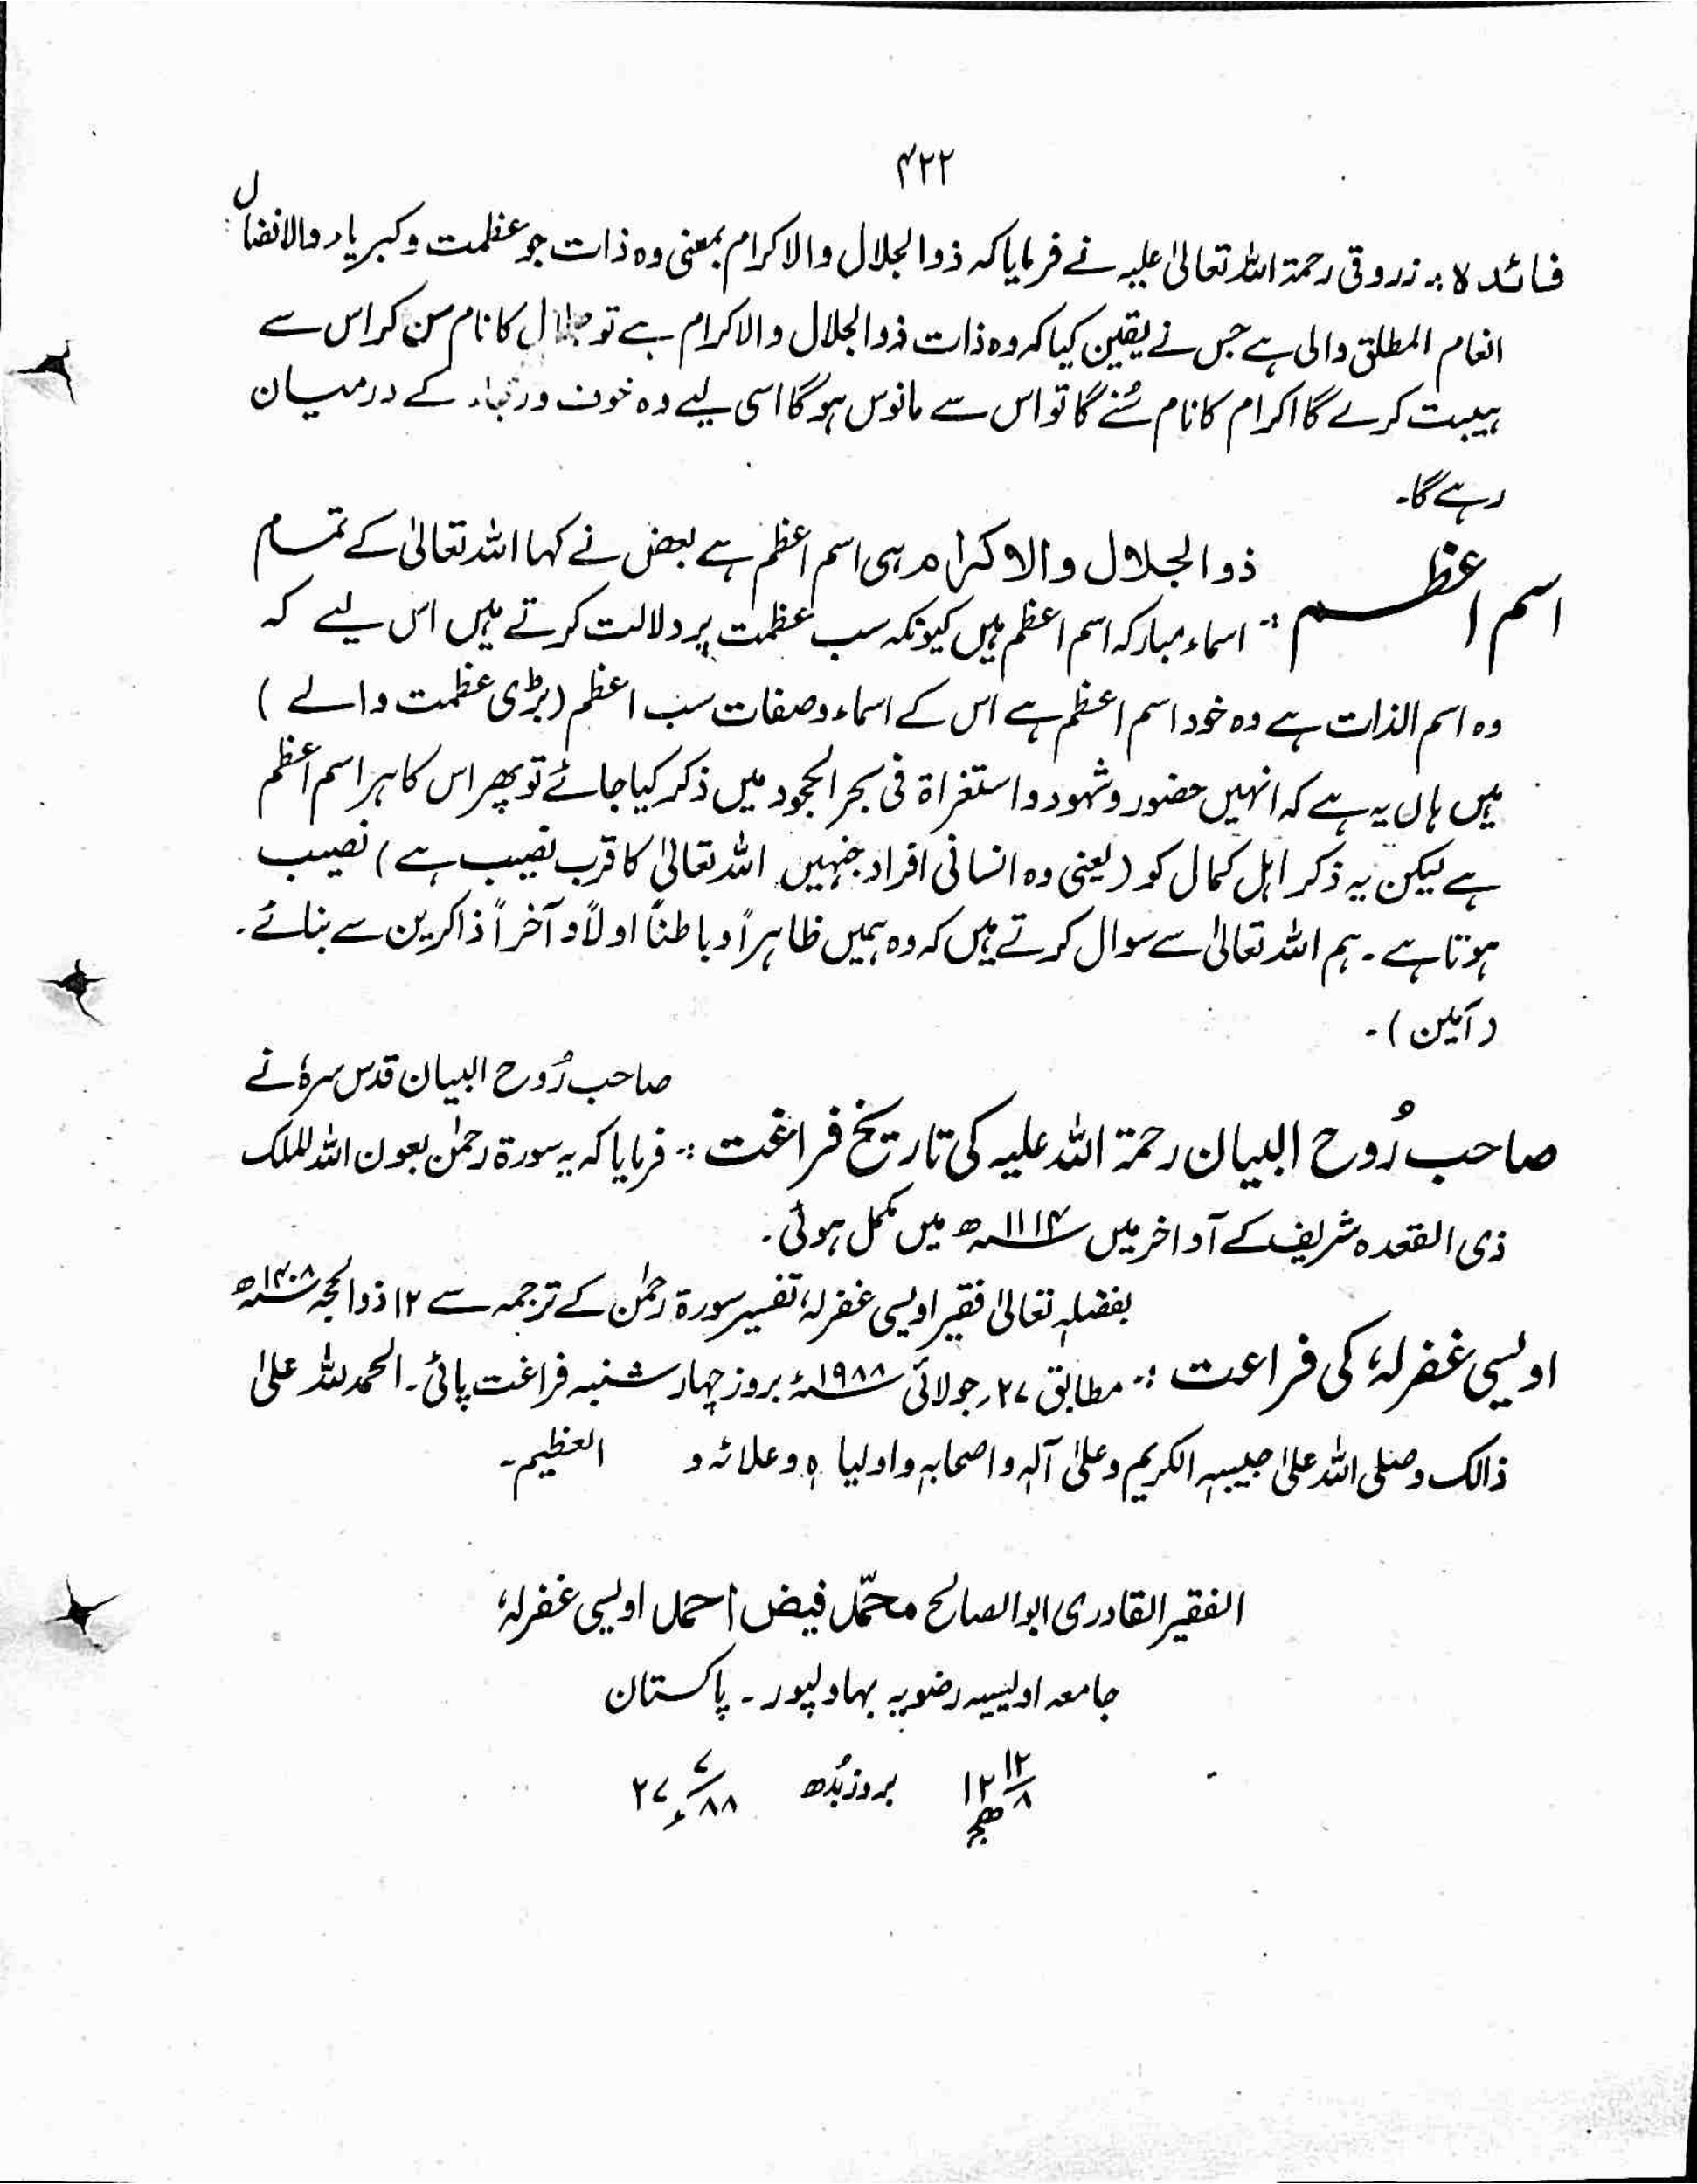 ۴۲۲
فائدہ :۔ زروقی رحمۃ اللہ تعالیٰ علیہ نے فرمایا کہ ذوالجلال والاکرام بمعنی وہ ذات جو عظمت و کبریاء والافضال
انعام المطلق والی ہے جس نے یقین کیا کہ وہ ذات ذوالجلال والاکرام ہے تو جلال کا نام سن کر اس سے
ہیبت کرے گا اکرام کا نام سُنے گا تو اس سے مانوس ہوگا اسی لیے وہ خوف و رجاء کے درمیان
رہے گا۔
ذوالجلال والاکرام ہی اسم اعظم ہے بعض نے کہا اللہ تعالیٰ کے تمام
اسم اعظم :۔ اسماء مبارکہ اسم اعظم ہیں کیونکہ سب عظمت پر دلالت کرتے ہیں اس لیے کہ
وہ اسم الذات ہے وہ خود اسم اعظم ہے اس کے اسماء و صفات سب اعظم (بڑی عظمت والے )
ہیں ہاں یہ ہے کہ انہیں حضور و شہود و استغراۃ فی بحر الجود میں ذکر کیا جائے تو پھر اس کا ہر اسم اعظم
ہے لیکن یہ ذکر اہل کمال کو (یعنی وہ انسانی افراد جنہیں اللہ تعالیٰ کا قرب نصیب ہے) نصیب
ہوتا ہے ۔ ہم اللہ تعالیٰ سے سوال کرتے ہیں کہ وہ ہمیں ظاہراً و باطناً اولاً و آخراً ذاکرین سے بنائے۔
(آمین)۔
صاحب رُوح البیان قدس سرہٗ نے
صاحب رُوح البیان رحمۃ اللہ علیہ کی تاریخ فراغت :۔ فرمایا کہ یہ سورۃ رحمٰن بعون اللہ للملک
ذی القعدہ شریف کے آواخر میں ۱۱۱۴ھ میں مکمل ہوئی۔
بفضلہٖ تعالیٰ فقیر اویسی غفرلہٗ تفسیر سورۃ رحمٰن کے ترجمہ سے ۱۲ ذوالحجہ ۱۴۰۸ھ
اویسی غفرلہٗ کی فراعت :۔ مطابق ۲۷؍جولائی ۱۹۸۸ء بروز چہار شنبہ فراغت پائی۔ الحمدللہ علیٰ
ذالک وصلی اللہ علیٰ حبیبہٖ الکریم وعلیٰ آلہٖ واصحابہٖ واولیا ہٖ وعلائہ و العظیم۔
الفقیر القادری ابوالصالح محمّد فیض احمد اویسی غفرلہٗ
جامعہ اویسیہ رضویہ بہاولپور ۔ پاکستان
۱۲ ۱۲/۸ھ بروز بُدھ ۲۷ ۷/۸۸ء